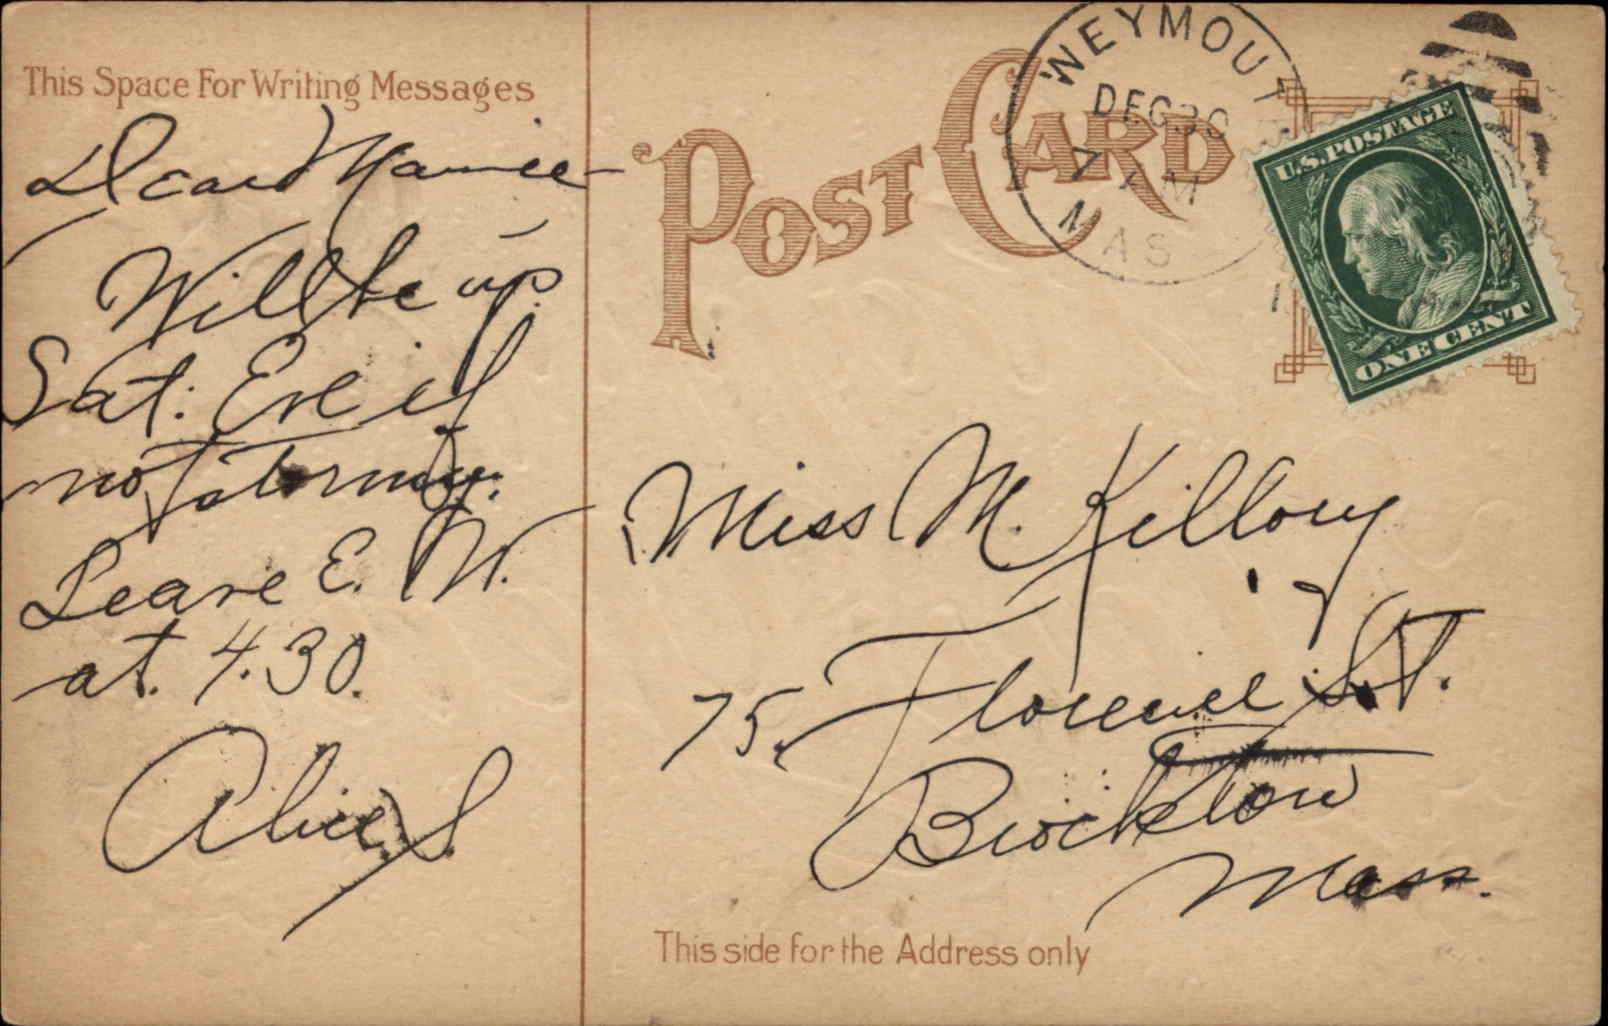 This Space For Writing Messages
POST CARD
WEYMOUT
DEC 30
7 M
MAS
U.S. POSTAGE
ONE CENT
Dear Mamie
Will be up
Sat. Eve if
not stormy.
Leave E. W.
at. 4.30.
Alice S.
Miss M. Killory
75. Florence St.
Brockton
Mass.
This side for the Address only